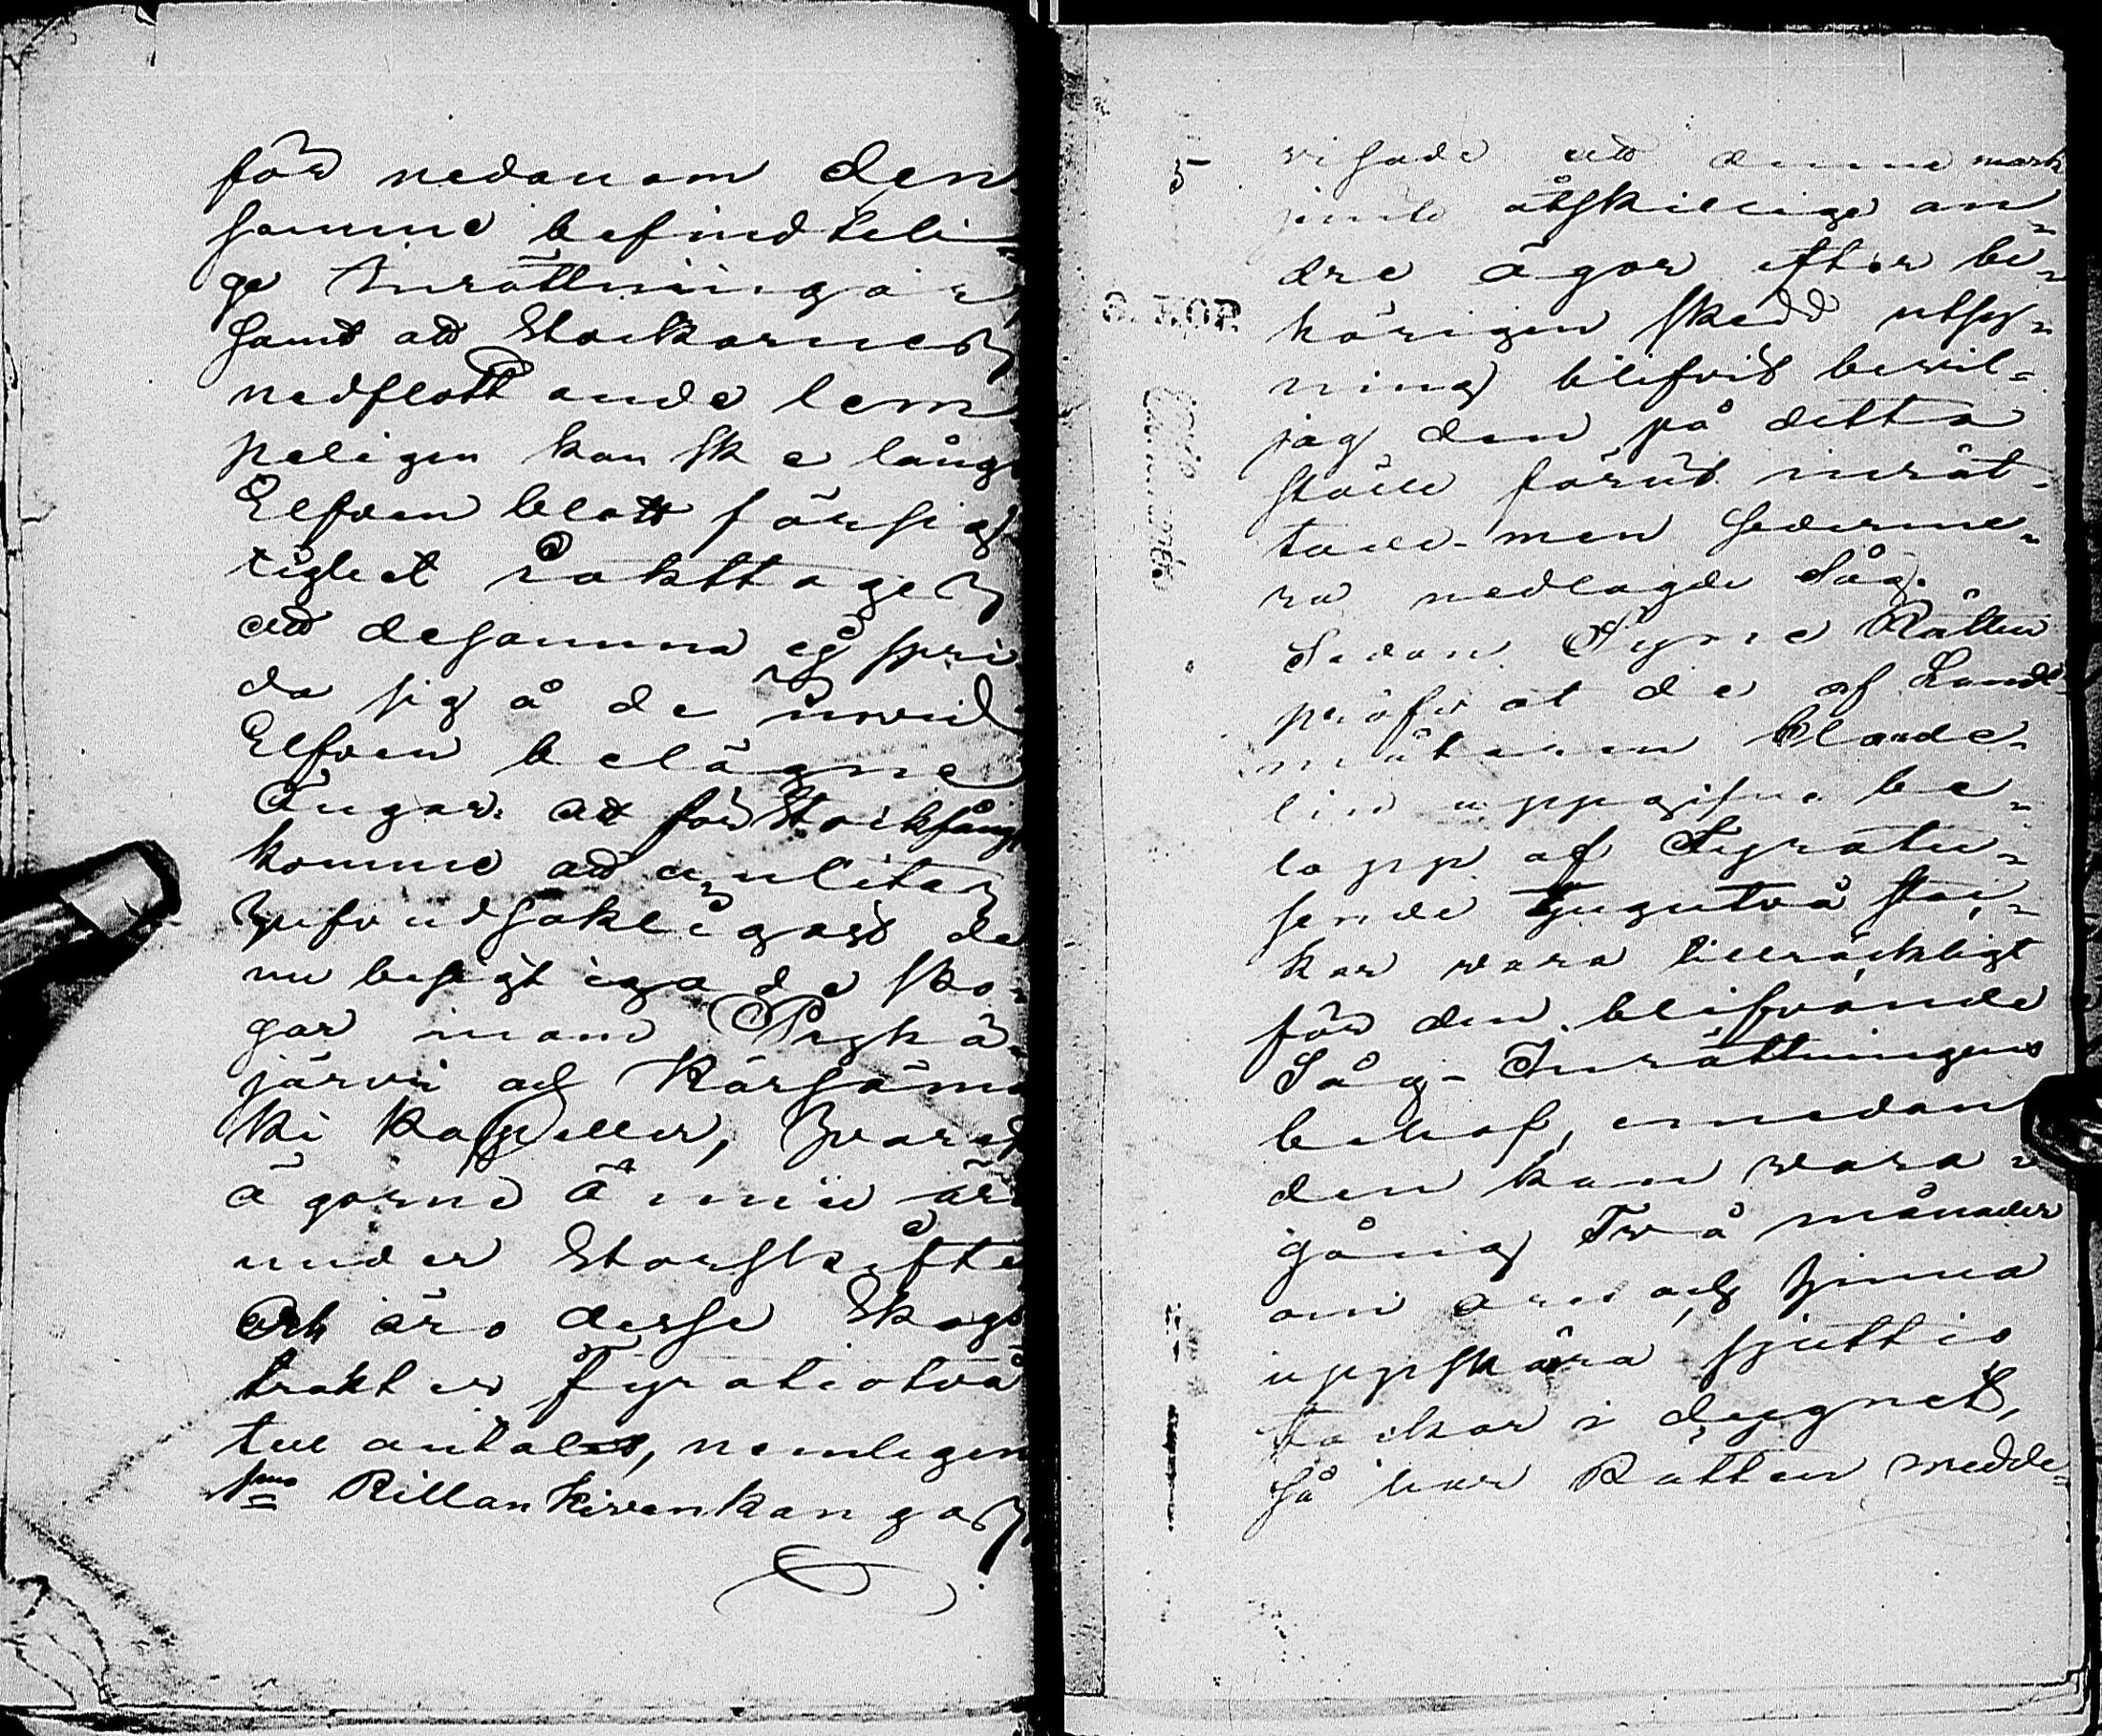 för nedanom den
samme befindteli=
ge Inrättningar
samt att Stockarnes
nedflottande lem
peligen kan ske längs
Elfven blott försig
tighet iakttages
att desamma ej spri
da sig å de invid
Elfven belägne
Ängar. Att för Stockfångst
komme att anlitas
hufvudsakligast de
nu besigtigade sko=
gar inom Pyhä=
järvi och Kärsämä
ki Kapeller, hvarest
ägorne ännu äro
under Storskifte
Och äro desse Skogs
trakter Fyratiotvå
till antalet, nemligen
1mo Rillankivenkangas
5
S. KOP.
visade att denne mark
jemte åtskillige an=
dre ägor efter be=
hörigen skedd utsy=
ning blifvit bevil=
jad den på detta
ställe förut inrät=
tade men sederme=
ra nedlagde Såg.
Sedan Syne Rätten
pröfvat de af Landt
mätaren Blande=
lin uppgifne be=
lopp af Fyratu=
sende tjugutvå stoc=
kar vara tillräckligt
för den blifvande
Såg-Inrättningens
behof, emedan
den kan vara i
gång Två månader
om året och hinna
uppskära sjuttio
stockar i dygnet,
så har Rätten medde=